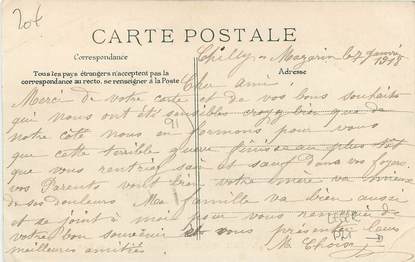 20€
CARTE POSTALE
Correspondance
Tous les pays étrangers n'acceptent pas la
correspondance au recto, se renseigner à la Poste
Adresse
Chilly-Mazarin le 7 Janvier
1918
Cher ami.
Merci de votre carte et de vos bons souhaits
qui nous ont été sensibles croyez bien que de
notre côté nous en formons pour vous
que cette terrible guerre finisse au plus tôt
que vous rentriez sain et sauf dans vos foyers
vos Parents vont bien votre mère va mieux
de ses douleurs. Ma famille va bien aussi
et se joint à moi pour vous remercier de
votre bon souvenir et vous présenter leurs
meilleures amitiés
91